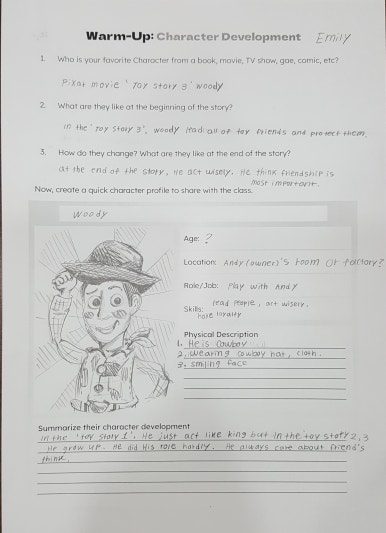 Warm-Up: Character Development Emily
1. Who is your favorite Character from a book, movie, TV show, gae, comic, etc?
Pixar movie 'Toy story 3' woody
2. What are they like at the beginning of the story?
In the 'Toy story 3', woody lead all of toy friends and protect them.
3. How do they change? What are they like at the end of the story?
at the end of the story, He act wisely. He think friendship is
most important.
Now, create a quick character profile to share with the class.
woody
Age: ?
Location: Andy (owner)'s room or factory?
Role/Job: Play with Andy
Skills: lead people, act wisely.
have loyalty
Physical Description
1. He is cowboy
2. wearing cowboy hat, cloth.
3. smiling face
Summarize their character development
in the 'Toy story 1'. He just act like king but in the toy story 2, 3
He grow up. He did His role hardly. He always care about friend's
think.